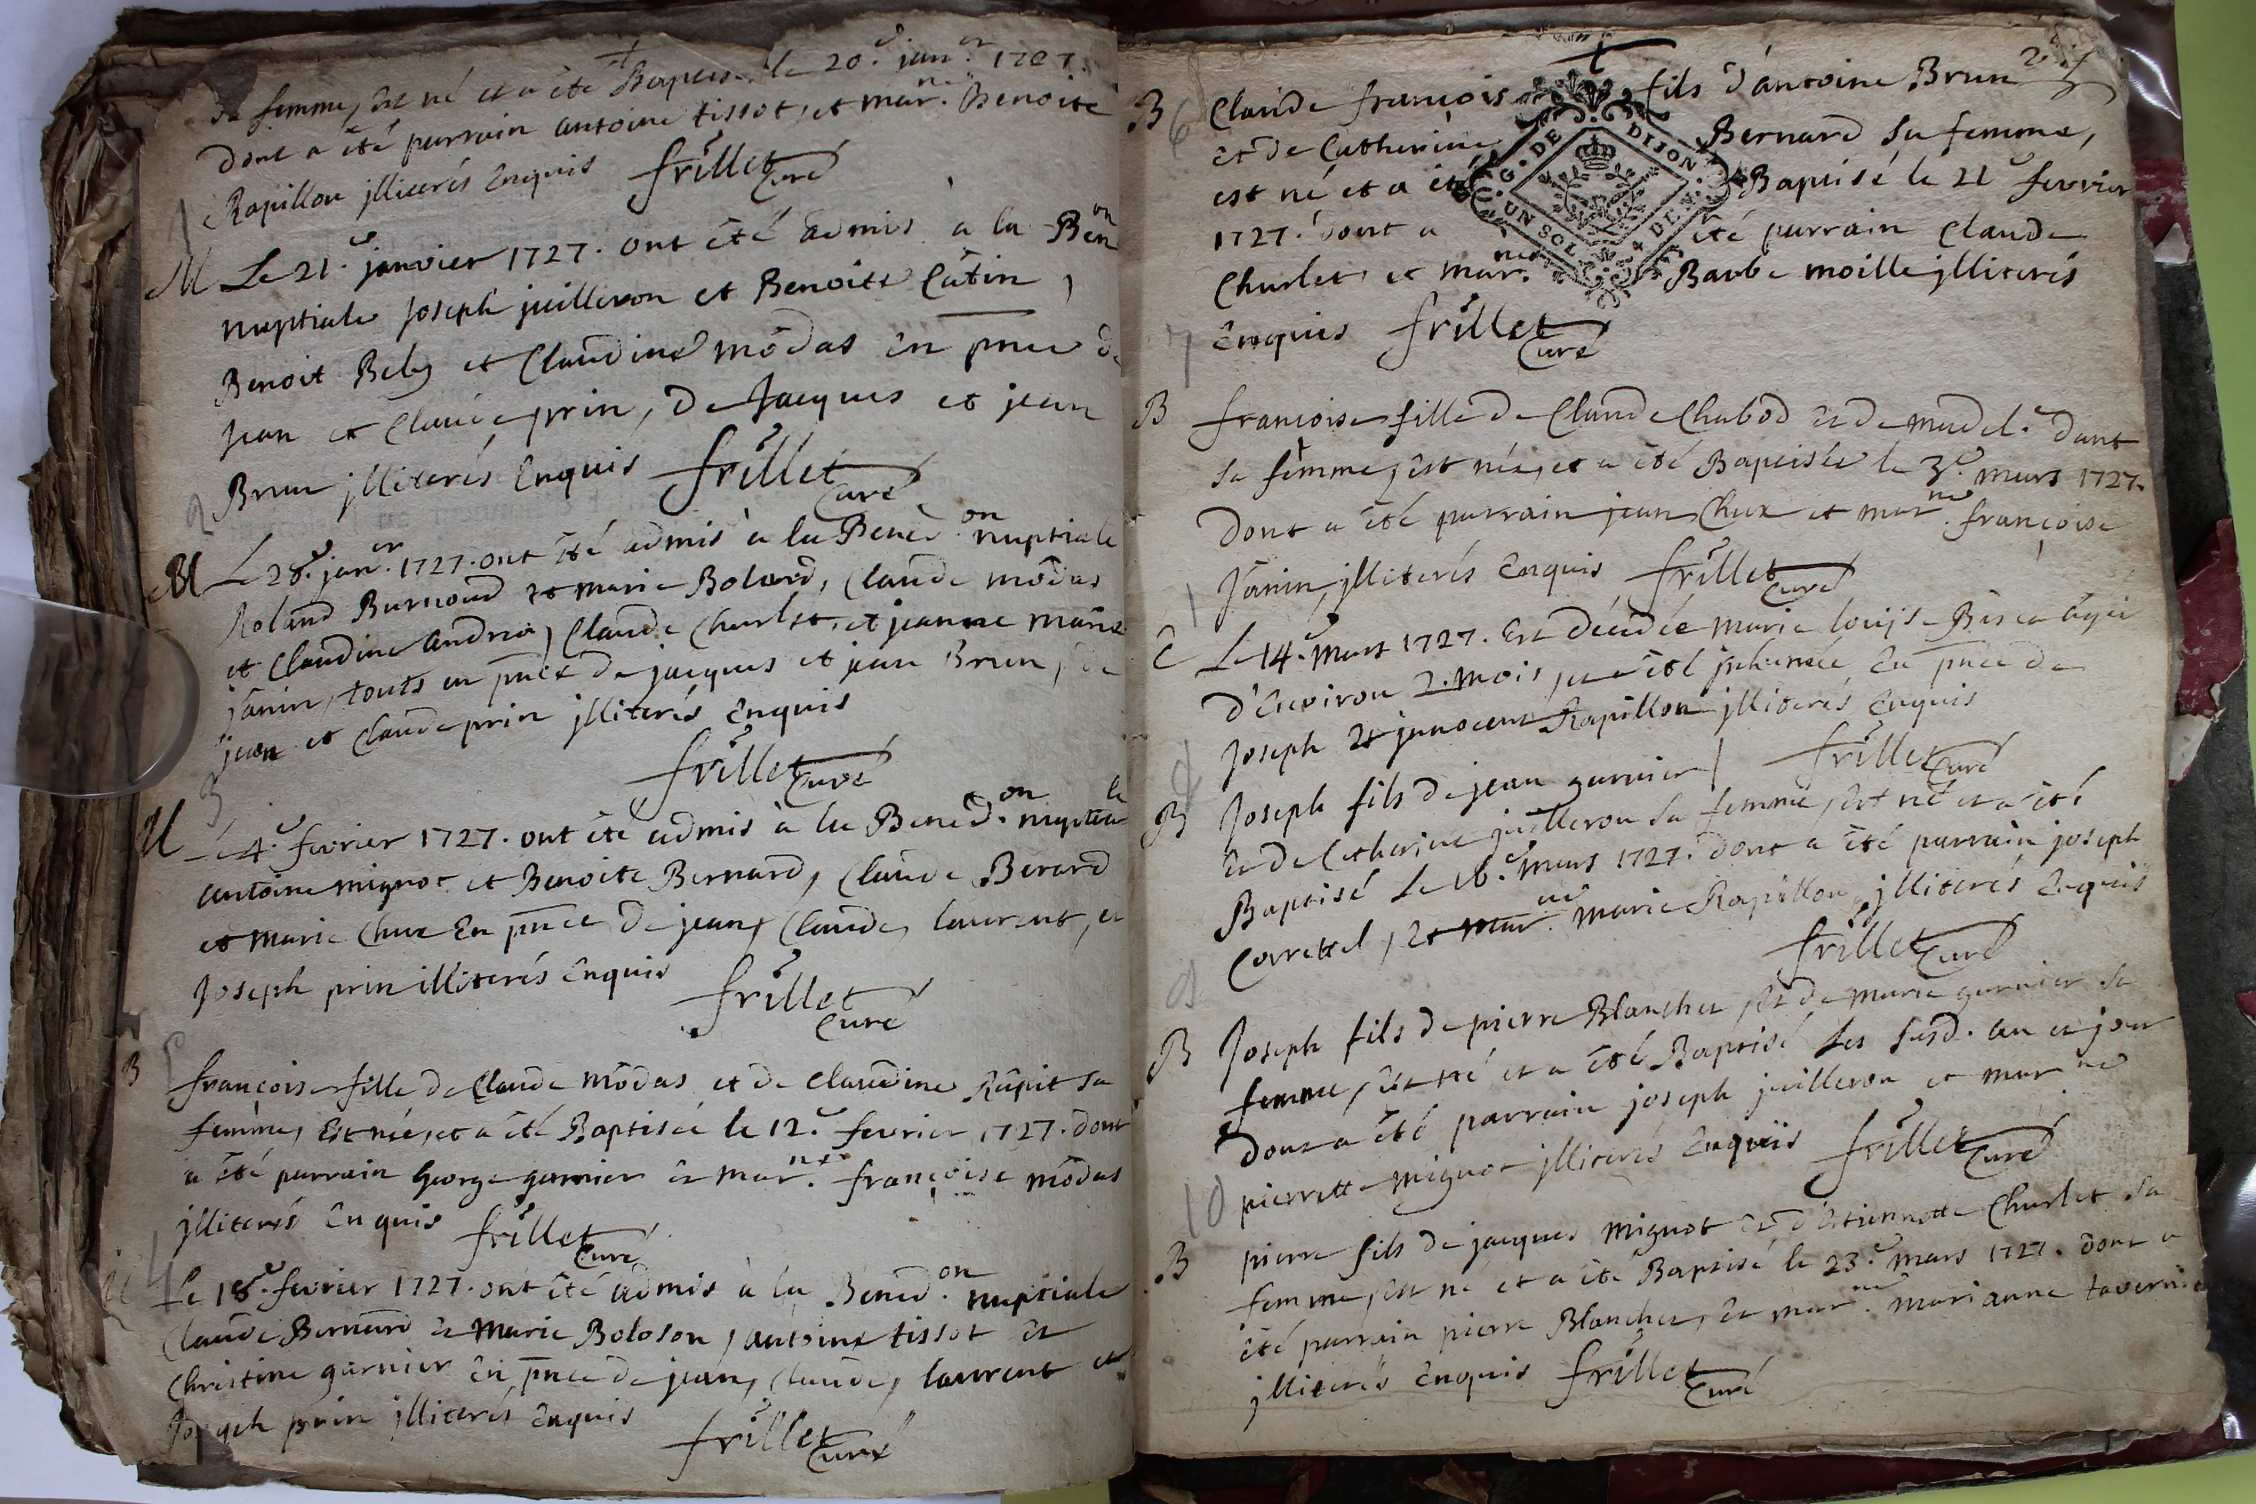 sa femme, est né et a été Baptisé le 20.e jan.er 1727.
dont a été parrain antoine tissot, et mar.ne Benoite
Rapillon jlliterés Enquis frillet Curé
1
M Le 21.e janvier 1727. ont été admis à la Ben.on
nuptiale Joseph juilleron et Benoite Catin,
Benoit Bely et Claudine môdas en pnce de
Jean et Claude prin, de Jacques et jean
Brun jlliterés Enquis frillet Curé
2
M Le 28.e jan.er 1727. ont été admis à la Bened.on nuptiale
Roland Burnoud et marie Bolard, Claude môdas
et Claudine andrea, Claude Churlet, et jeanne marie
janin, touts en pnce de jacques et jean Brun, de
jean et Claude prin jlliterés Enquis
frillet Curé
3
M Le 4.e fevrier 1727. ont été admis à la Bened.on nuptiale
antoine mignot et Benoite Bernard, Claude Berard
et marie Chux En pnce de jean, Claude, laurent, et
Joseph prin illiterés Enquis
frillet Curé
5
B françoise fille de Claude môdas et de Claudine Rûpit sa
femme, Est née, et a été Baptisée le 12.e fevrier 1727. dont
a été parrain george garnier et mar.ne françoise môdas
jlliterés Enquis frillet Curé
4
M Le 18.e fevrier 1727. ont été admis à la Bened.on nuptiale
Claude Bernard et Marie Boloson, antoine tissot et
Christine garnier En pnce de jean, Claude, laurent et
Joseph prin jlliterés Enquis
frillet Curé
B 6 Claude françois fils d'antoine Brun
et de Catherine Bernard sa femme,
est né et a été Baptisé le 21.e fevrier
1727. dont a été parrain Claude
Churlet, et mar.ne Barbe moille jlliterés
Enquis frillet Curé
G. DE DIJON
UN SOL 4 D.
7
B françoise fille de Claude Chabod et de madel.e dant
sa femme, est née, et a été Baptisée le 3.e mars 1727.
dont a été parrain jean Chux et mar.ne françoise
Janin, jlliterés Enquis frillet Curé
1
Le 14.e Mars 1727. Est décédée marie louise agée
d'Environ 2. mois, et a été jnhumée En pnce de
Joseph et jnnocent Rapillon jlliterés Enquis
frillet Curé
B Joseph fils de jean garnier
et de Catherine juilleron sa femme, est né et a été
Baptisé Le 16.e mars 1727. dont a été parrain joseph
Correttel, et mar.ne marie Rapillon jlliterés Enquis
frillet Curé
9
B Joseph fils de pierre Blanchet, et de marie garnier sa
femme, est né et a été Baptisé les susd. an et jour
dont a été parrain joseph juilleron et mar.ne
pierrette mignot jlliterés Enquis frillet Curé
10
B pierre fils de jacques mignot et d'Estiennette Churlet sa
femme, est né et a été Baptisé le 23.e mars 1727. dont a
été parrain pierre Blanchet, et mar.ne marianne tavernier
jlliterés Enquis frillet Curé